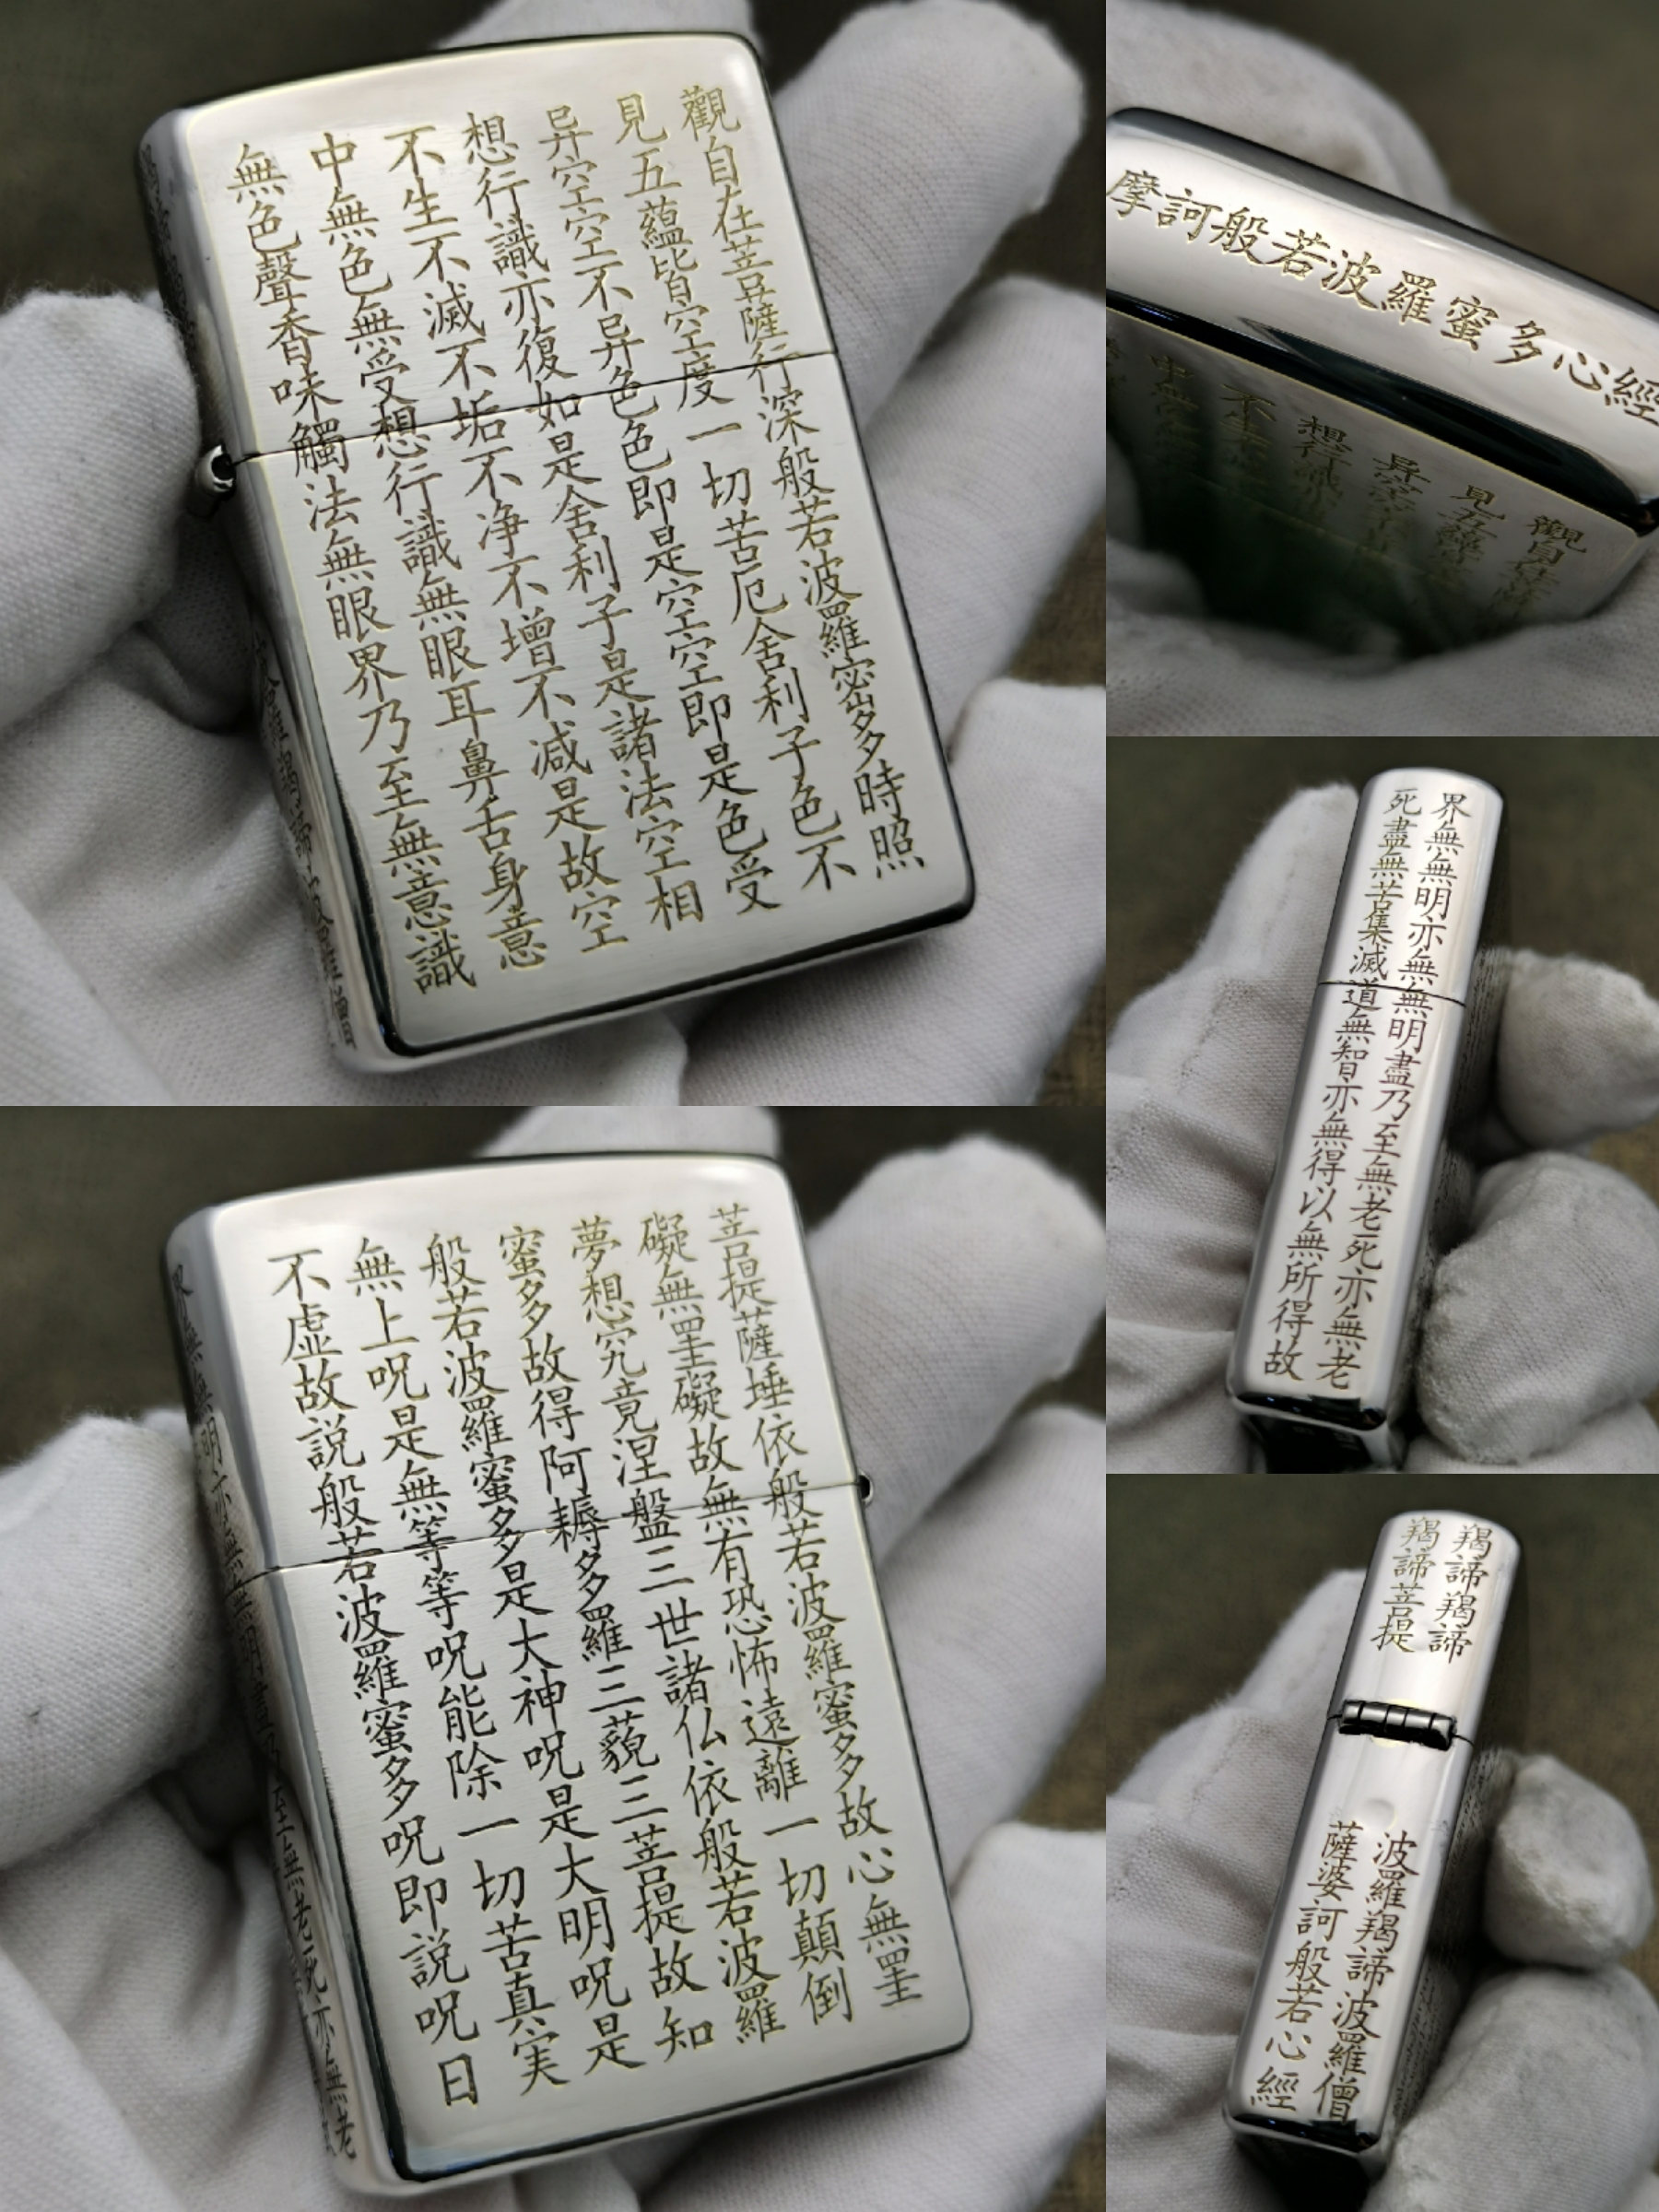 觀自在菩薩行深般若波羅密多時照
見五蘊皆空度一切苦厄舍利子色不
异空空不异色色即是空空即是色受
想行識亦復如是舍利子是諸法空相
不生不滅不垢不净不增不减是故空
中無色無受想行識無眼耳鼻舌身意
無色聲香味觸法無眼界乃至無意識
摩訶般若波羅蜜多心經
觀自在
見五蘊
异空空
想行識
不生
中
界無無明亦無無明盡乃至無老死亦無老
死盡無苦集滅道無智亦無得以無所得故
菩提薩埵依般若波羅蜜多故心無罣
礙無罣礙故無有恐怖遠離一切顛倒
夢想究竟涅盤三世諸仏依般若波羅
蜜多故得阿耨多羅三藐三菩提故知
般若波羅蜜多是大神呪是大明呪是
無上呪是無等等呪能除一切苦真実
不虚故説般若波羅蜜多呪即説呪日
羯諦羯諦
羯諦菩提
波羅羯諦波羅僧
薩婆訶般若心經